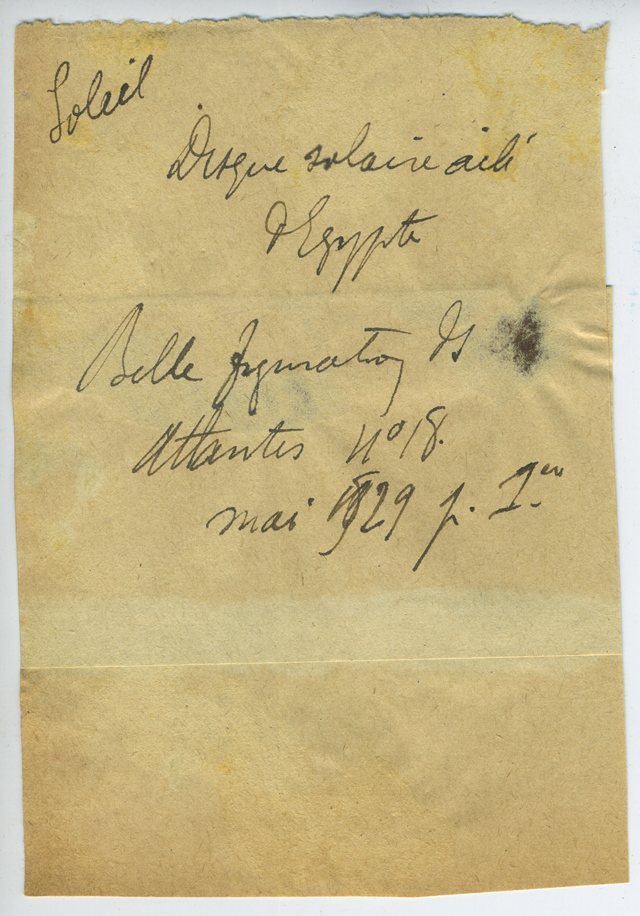 Soleil
Disque solaire ailé
d'Egypte
Belle figuration ds
Atlantis no 18.
mai 1929 p. 1ère